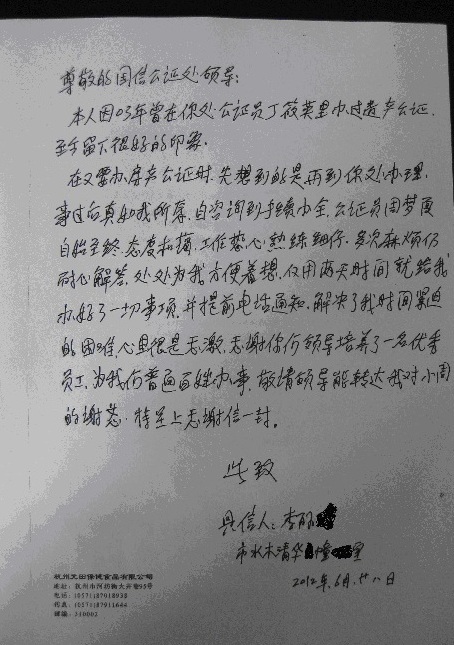 尊敬的国信公证处领导:
本人因03年曾在你处公证员丁筱英里办过遗产公证,
至今留下很好的印象。
在又要办房产公证时,先想到的是再到你处办理,
事过后真如我所奈,自咨询到手续办全,公证员周梦
自始至终,态度和蔼,工作热心,熟练细仔,多次麻烦仍
耐心解答,处处为我方便着想,仅用两天时间就给我
办好了一切事项,并提前电话通知,解决了我时间紧迫
的困难心里很是感激,感谢你们领导培养了一名优秀
员工,为我们普通百姓办事,敬请领导能转达我对小周
的谢意,特呈上感谢信一封。
此致
具信人:李
市水木清华 幢 室
2012年6月廿八日
杭州天田保健食品有限公司
地址:杭州市河坊街大井巷95号
电话:(0571)87918938
传真:(0571)87911644
邮编:310002